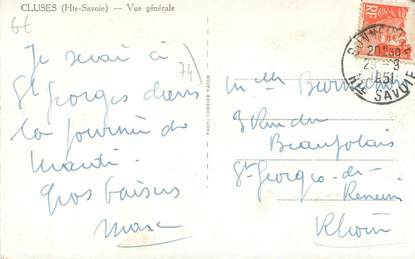 CLUSES (Hte-Savoie) — Vue générale
6€
74
Je serai à
St Georges dans
la journée de
Mardi.
Gros baisers
Max
PHOTO COMBIER MACON
RF
20H30
2 - 3
1951
Hte SAVOIE
Melle
3 Rue du
Beaujolais
St Georges-de-
Reneins
Rhône